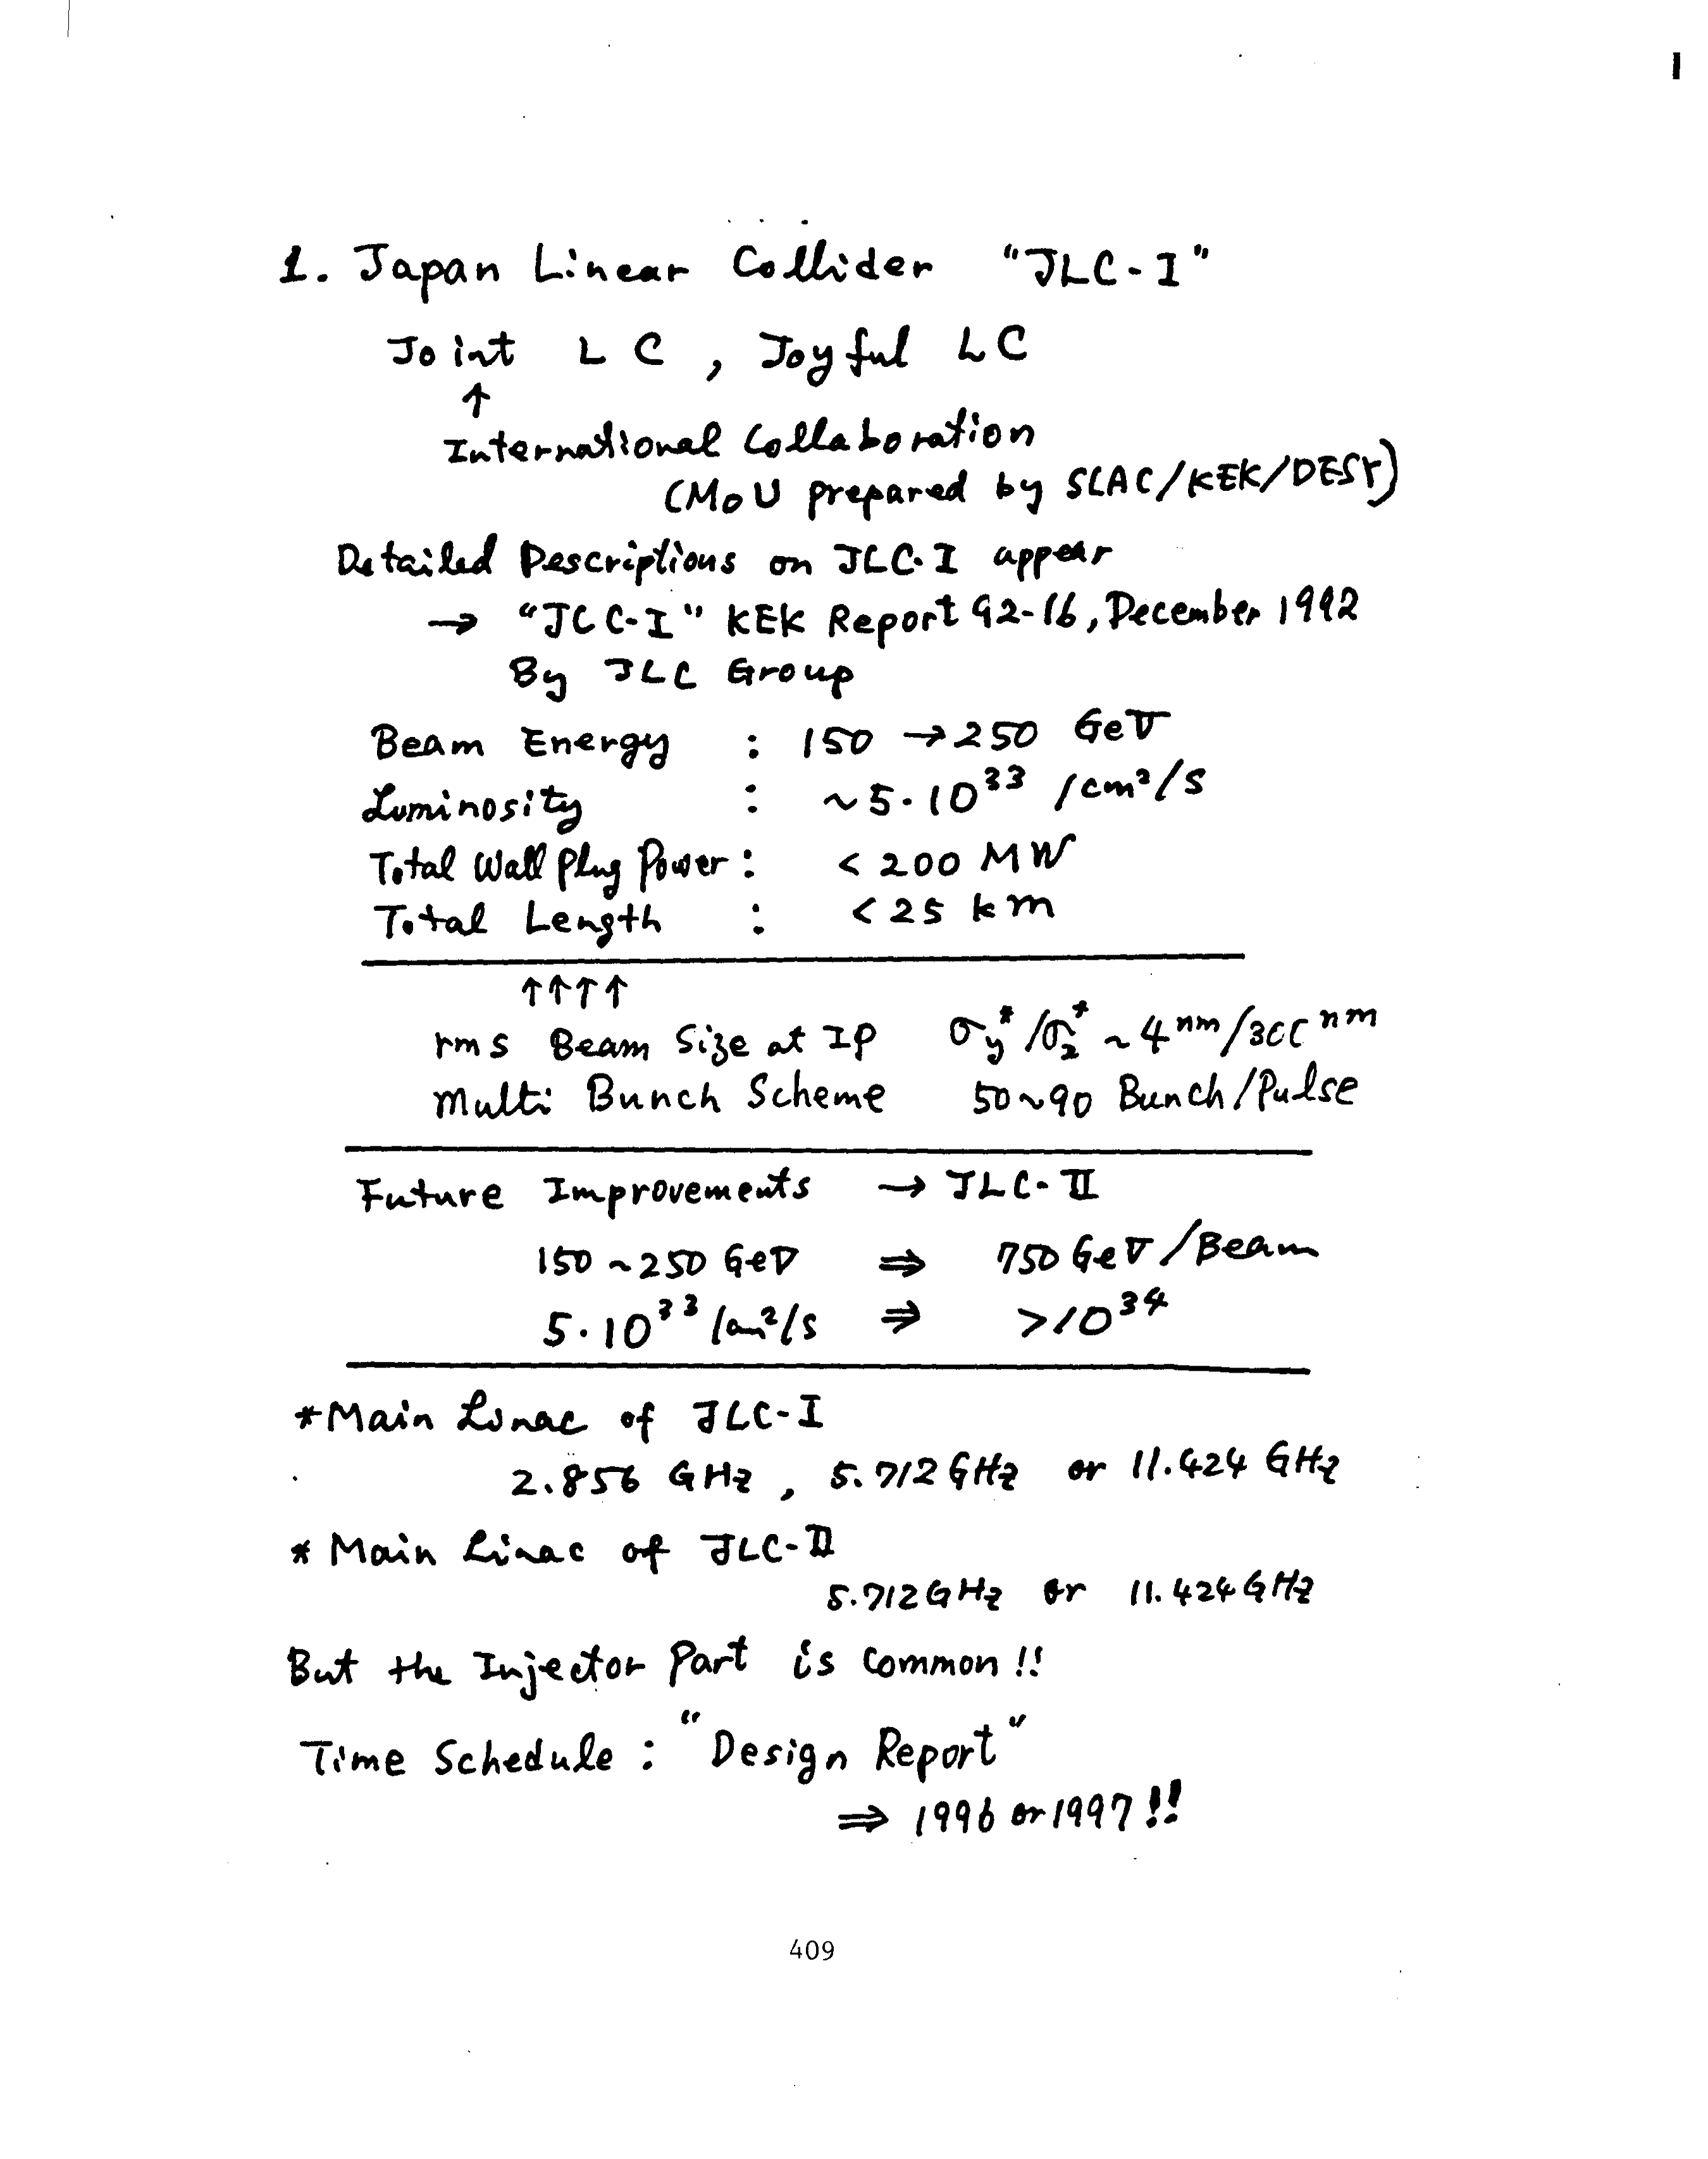 1. Japan Linear Collider "JLC-I"
Joint LC, Joyful LC
↑
International Collaboration
(MoU prepared by SLAC/KEK/DESY)
Detailed Descriptions on JLC-I appear
→ "JLC-I" KEK Report 92-16, December 1992
By JLC Group
Beam Energy : 150 → 250 GeV
Luminosity : ~5·10³³ /cm²/s
Total Wall Plug Power : < 200 MW
Total Length : < 25 km
↑↑↑↑
rms Beam Size at IP σy*/σx* ~ 4nm/300nm
Multi Bunch Scheme 50~90 Bunch/Pulse
Future Improvements → JLC-II
150 ~ 250 GeV ⇒ 750 GeV/Beam
5·10³³/cm²/s ⇒ >10³⁴
*Main Linac of JLC-I
2.856 GHz, 5.712 GHz or 11.424 GHz
* Main Linac of JLC-II
5.712 GHz or 11.424 GHz
But the Injector Part is common !!
Time Schedule : "Design Report"
⇒ 1996 or 1997 !!
409